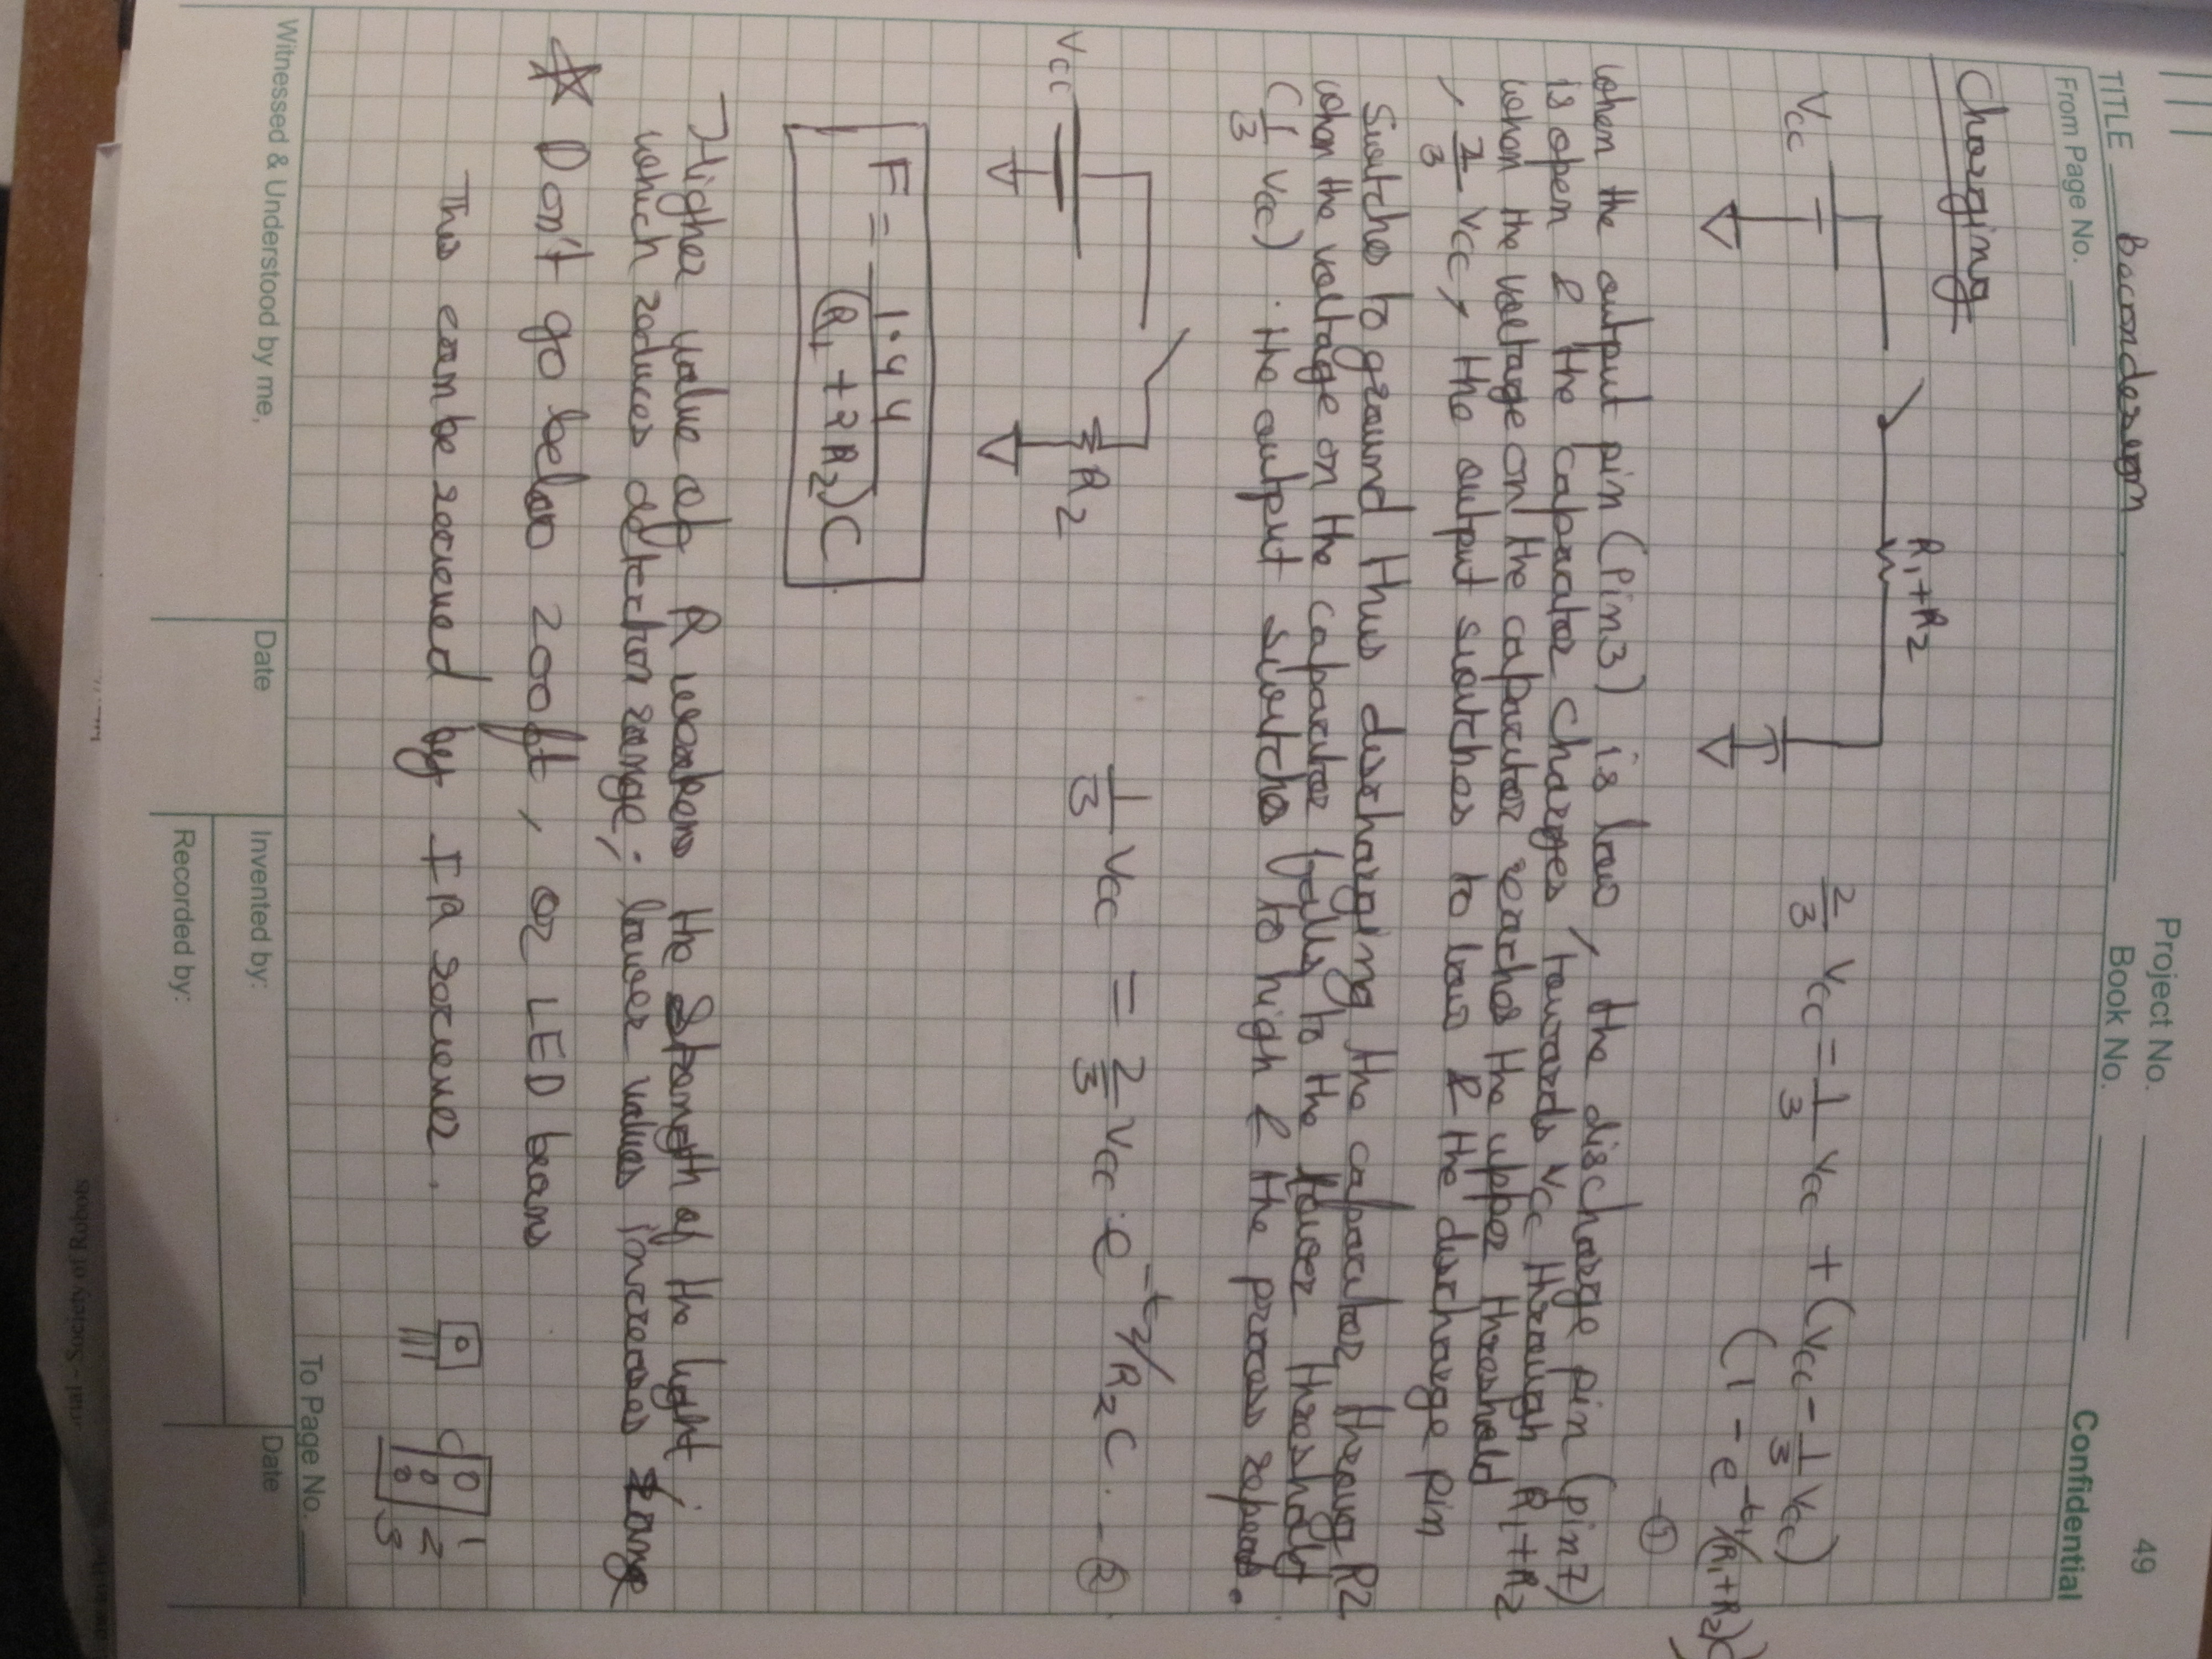 TITLE
Project No.
49
Book No.
From Page No.
Confidential
Charging
R1+R2
Vcc
2/3 Vcc = 1/3 Vcc + (Vcc - 1/3 Vcc)
(1 - e^-t1/(R1+R2)C)
- ①
when the output pin (Pin3) is low, the discharge pin (pin7)
is open & the capacitor charges towards Vcc through R1+R2
when the voltage on the capacitor reaches the upper threshold
, 2/3 Vcc, the output switches to low & the discharge pin
switches to ground thus discharging the capacitor through R2
when the voltage on the capacitor falls to the lower threshold
(1/3 Vcc) the output switches to high & the process repeats.
Vcc
R2
1/3 Vcc = 2/3 Vcc e^-t2/R2C - ②
F = 1.44/(R1 + 2R2)C
Higher value of R weakens the strength of the light;
which reduces detection range; lower values increases range
☆ Don't go below 200ft, or LED
This can be recieved by IR reciever.
1
2
3
To Page No.
Witnessed & Understood by me,
Date
Invented by:
Date
Recorded by:
Society of Robots